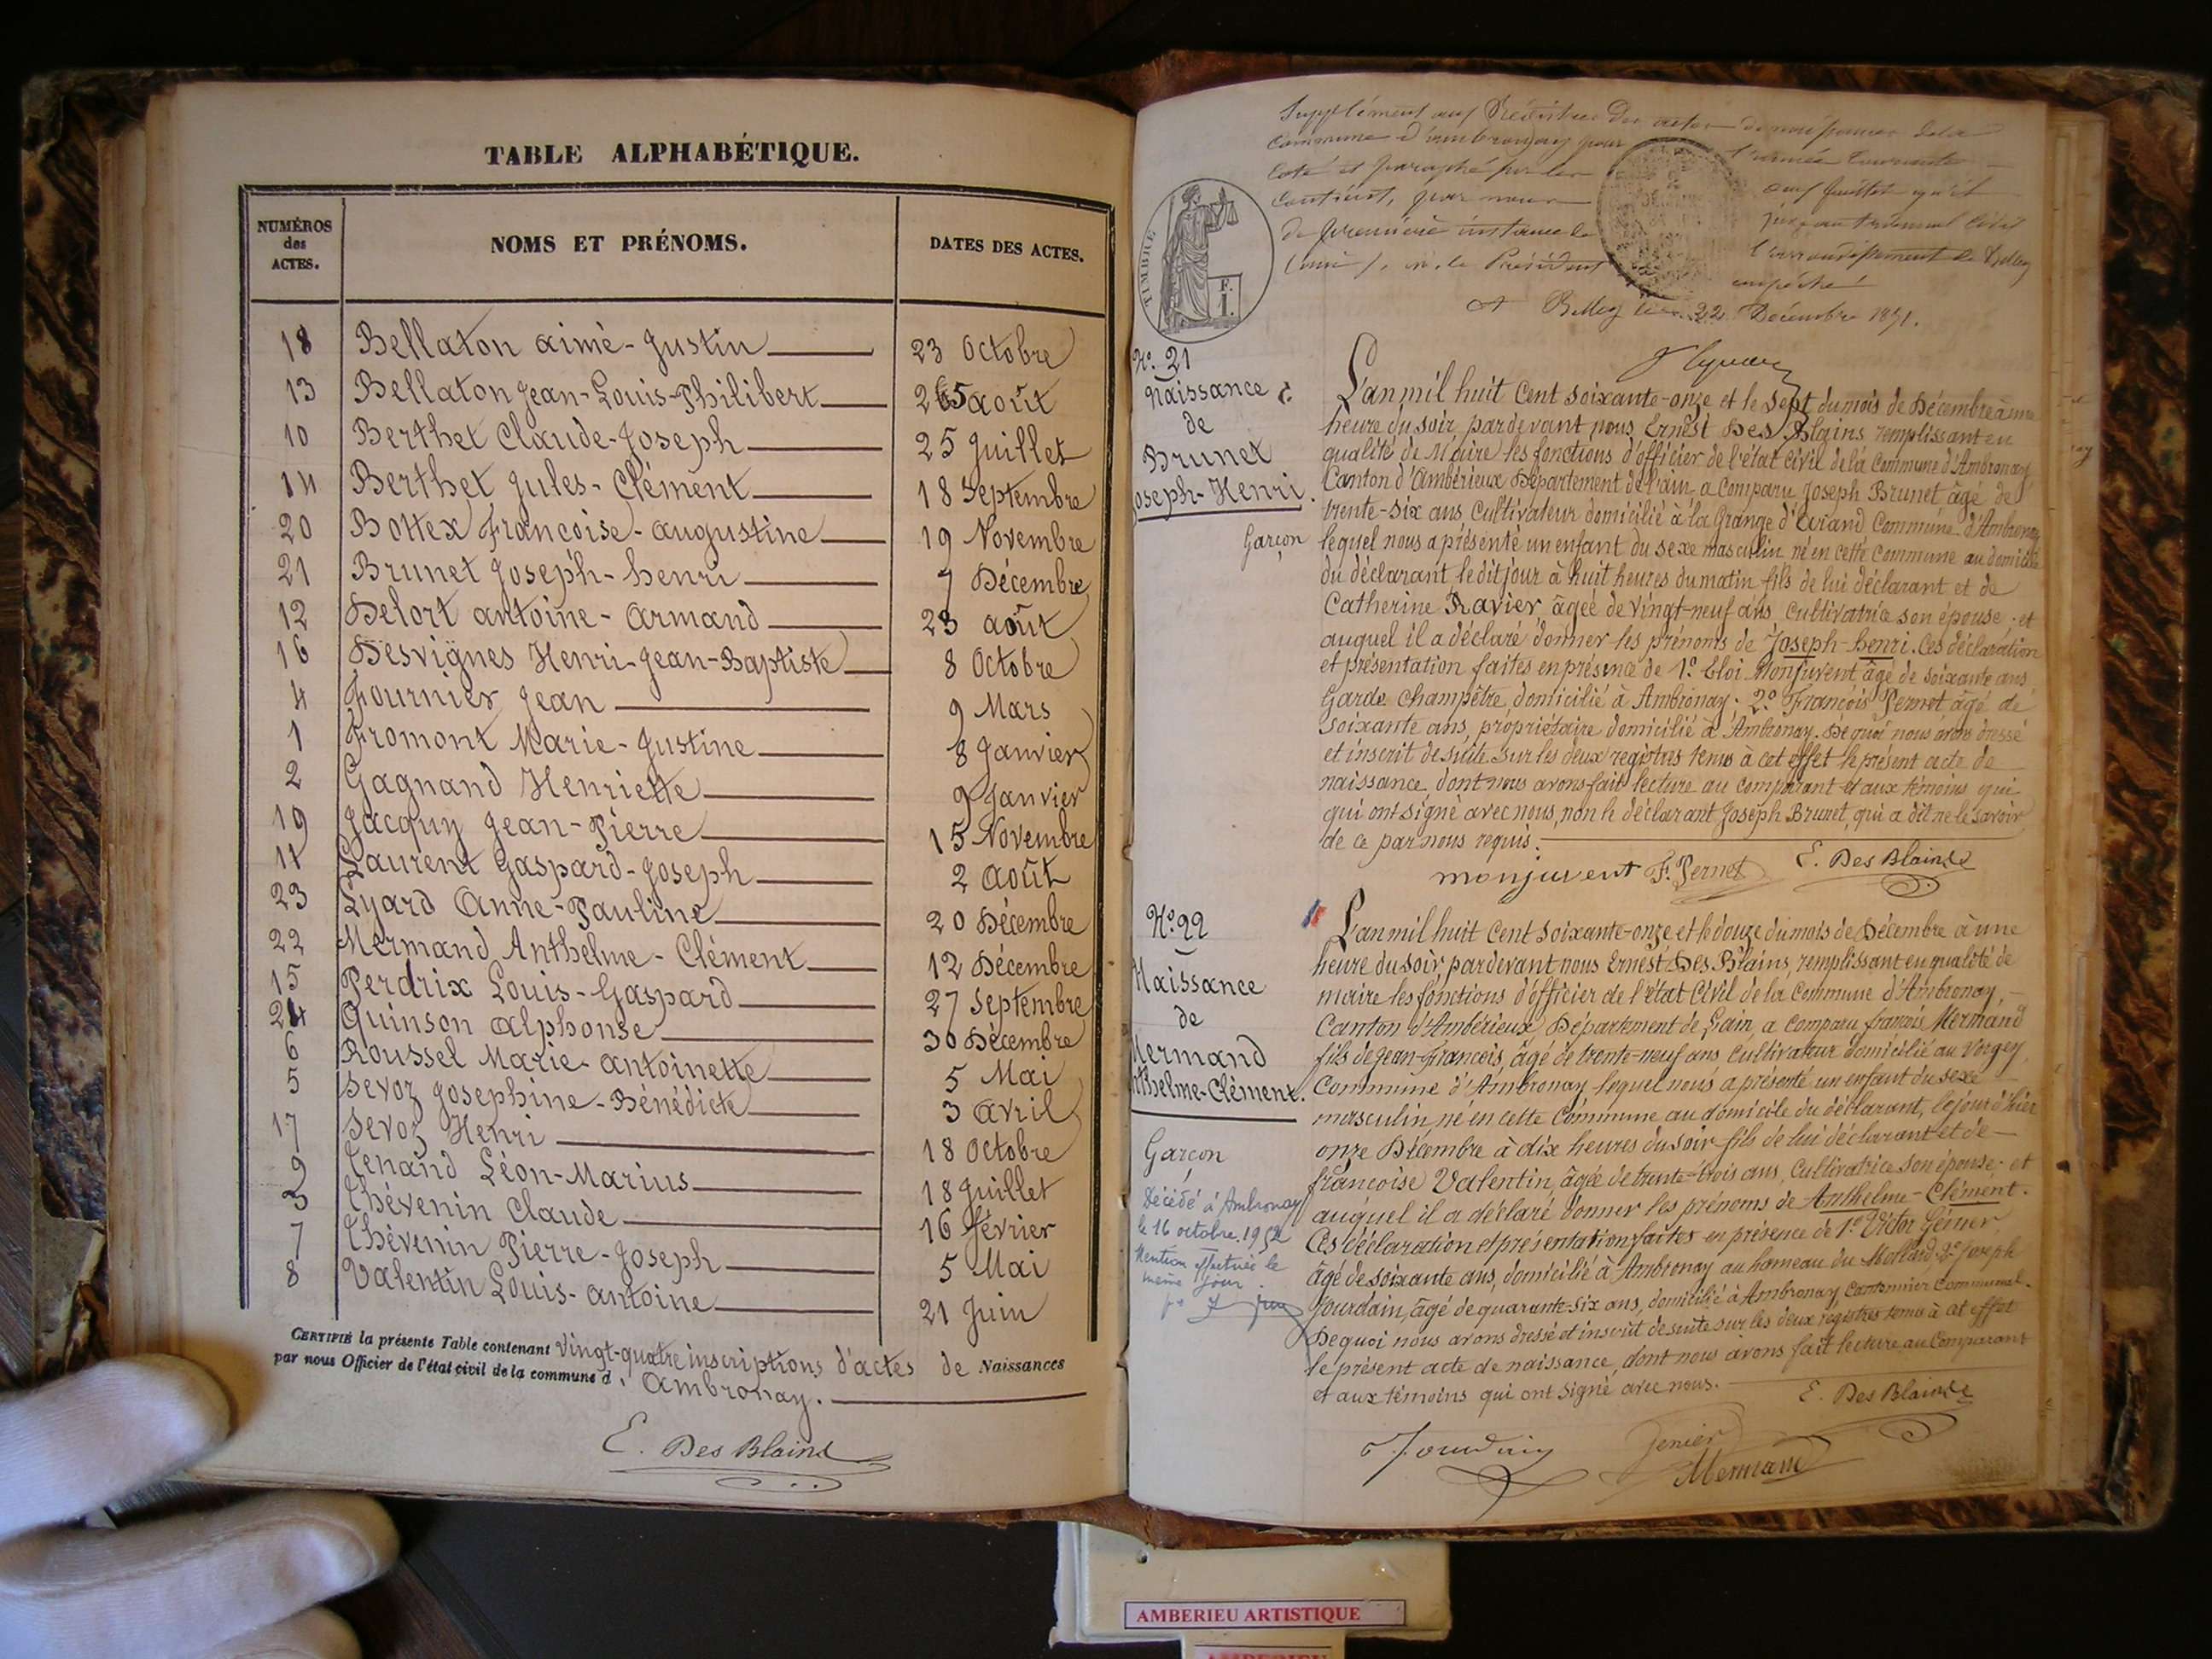 TABLE ALPHABÉTIQUE.
NUMÉROS des ACTES. NOMS ET PRÉNOMS. DATES DES ACTES.
18 Bellaton aimé-Justin 23 Octobre
13 Bellaton Jean-Louis-Philibert 25 août
10 Berthet Claude-Joseph 25 Juillet
14 Berthet Jules-Clément 18 Septembre
20 Bottex Francoise-augustine 19 Novembre
21 Brunet Joseph-henri 7 Décembre
12 Delort antoine-Armand 23 août
16 Desvignes Henri-Jean-Baptiste 8 Octobre
4 Fournier Jean 9 Mars
1 Fromont Marie-Justine 8 Janvier
2 Gagnand Henriette 9 Janvier
19 Jacquy Jean-Pierre 15 Novembre
11 Laurent Gaspard-Joseph 2 août
23 Lyard Anne-Pauline 20 Décembre
22 Mermand Anthelme-Clément 12 Décembre
15 Perdrix Louis-Gaspard 27 Septembre
24 Quinson alphonse 30 Décembre
6 Roussel Marie-antoinette 5 Mai
5 Sevoz Josephine-Bénédicte 3 avril
17 Sevoz Henri 18 Octobre
9 Tenand Léon-Marius 18 Juillet
3 Thévenin Claude 16 février
7 Thévenin Pierre-Joseph 5 Mai
8 Valentin Louis-antoine 21 Juin
CERTIFIÉ la présente Table contenant Vingt-quatre inscriptions d'actes de Naissances
par nous Officier de l'état civil de la commune d' Ambronay.
E. Des Blains
Supplément aux Registres des actes de naissances de la
commune d'ambronay pour l'année courante
coté et paraphé par
contient, par nous
de première instance de l'arrondissement de Belley
(ain), vu le Président empêché
A Belley le 22 Décembre 1871.
TIMBRE
F.
1.
No. 21
Naissance
de
Brunet
Joseph-Henri.
Garçon
L'an mil huit cent soixante-onze et le sept du mois de Décembre à une
heure du soir pardevant nous Ernest Des Blains remplissant en
qualité de Maire les fonctions d'officier de l'état civil de la commune d'Ambronay
Canton d'Ambérieux Département de l'ain, a comparu Joseph Brunet âgé de
trente-six ans cultivateur domicilié à la Grange d' Commune d'Ambronay
lequel nous a présenté un enfant du sexe masculin né en cette commune au domicile
du déclarant le dit jour à huit heures du matin fils de lui déclarant et de
Catherine Ravier âgée de vingt-neuf ans cultivatrice son épouse. et
auquel il a déclaré donner les prénoms de Joseph-henri. Ces déclaration
et présentation faites en présence de 1º. Eloi Monjuvent âgé de soixante ans
Garde champêtre domicilié à Ambronay. 2º. François Pernet âgé de
soixante ans, propriétaire domicilié à Ambronay. De quoi nous avons dressé
et inscrit de suite sur les deux registres tenus à cet effet le présent acte de
naissance dont nous avons fait lecture au comparant et aux témoins qui
qui ont signé avec nous, non le déclarant Joseph Brunet, qui a dit ne le savoir
de ce par nous requis.
monjuvent F. Pernet E. Des Blains
No. 22
Naissance
de
Mermand
Anthelme-Clément.
Garçon
Décédé à Ambronay
le 16 octobre 1952
Mention effectuée le
même jour.
L'an mil huit cent soixante-onze et le douze du mois de Décembre à une
heure du soir, pardevant nous Ernest Des Blains, remplissant en qualité de
maire les fonctions d'officier de l'état Civil de la commune d'Ambronay,
Canton d'Ambérieux Département de L'ain, a comparu françois Mermand
fils de Jean-François, âgé de trente-neuf ans cultivateur domicilié au Vorgey
Commune d'Ambronay lequel nous a présenté un enfant du sexe
masculin né en cette Commune au domicile du déclarant, le jour d'hier
onze Décembre à dix heures du soir fils de lui déclarant et de
françoise Valentin, âgée de trente-trois ans, Cultivatrice son épouse. et
auquel il a déclaré donner les prénoms de Anthelme-Clément.
Ces déclaration et présentation faites en présence de 1º. Victor Génier
âgé de soixante ans, domicilié à Ambronay au hameau du Mollard. 2º. Joseph
Jourdain, âgé de quarante-six ans, domicilié à Ambronay cantonnier communal.
De quoi nous avons dressé et inscrit de suite sur les deux registres tenus à cet effet
le présent acte de naissance, dont nous avons fait lecture au Comparant
et aux témoins qui ont signé avec nous.
E. Des Blains
Jourdain Jenier
Mermand
AMBERIEU ARTISTIQUE
AMBERIEU